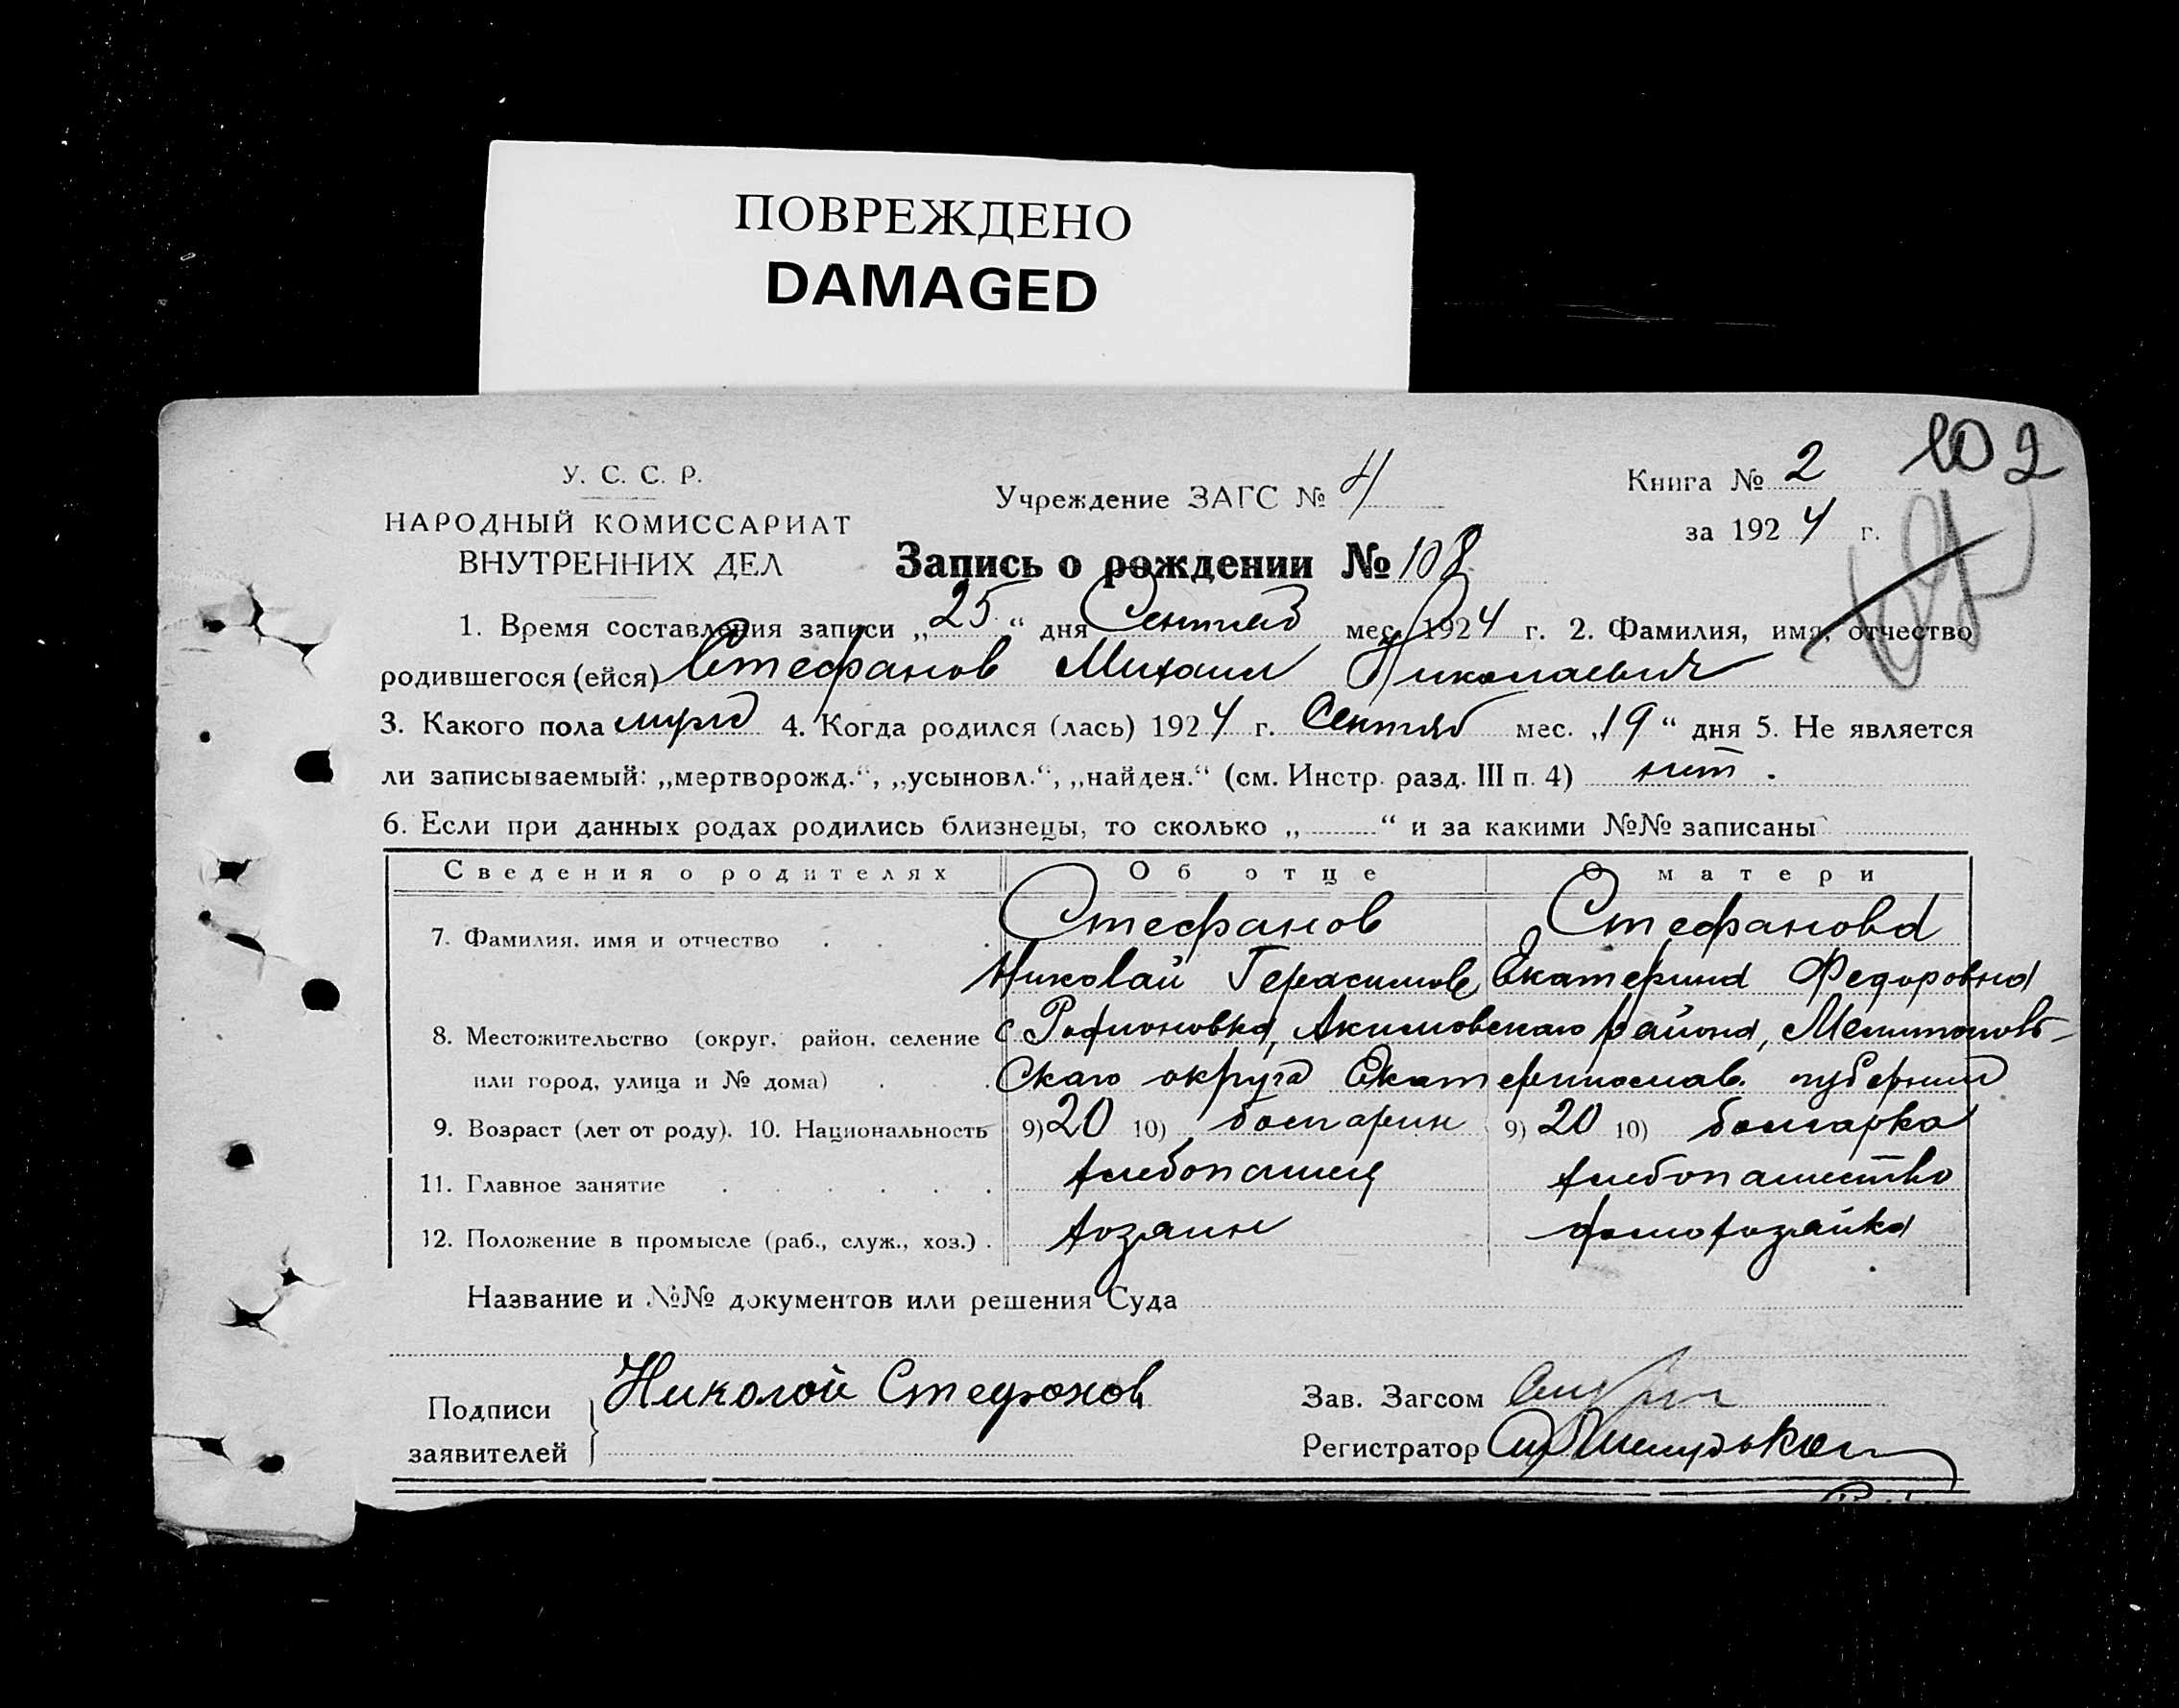 ПОВРЕЖДЕНО
DAMAGED
102
У. С. С. Р.
НАРОДНЫЙ КОМИССАРИАТ
ВНУТРЕННИХ ДЕЛ
Учреждение ЗАГС № 4
Книга № 2
за 1924 г.
Запись о рождении № 108
1. Время составления записи „25“ дня Сентяб мес. 1924 г. 2. Фамилия, имя, отчество
родившегося (ейся) Стефанов Михаил Николаевич
3. Какого пола муж 4. Когда родился (лась) 1924 г. Сентяб мес. „19“ дня 5. Не является
ли записываемый: „мертворожд.“, „усыновл.“, „найден.“ (см. Инстр. разд. III п. 4) нет.
6. Если при данных родах родились близнецы, то сколько „ “ и за какими №№ записаны
Сведения о родителях Об отце О матери
7. Фамилия, имя и отчество Стефанов Стефанова
Николай Герасимов Екатерина Федоровна
8. Местожительство (округ, район, селение с Родионовка, Акимовского района, Мелитополь-
или город, улица и № дома) ского округа Екатеринослав. губернии
9. Возраст (лет от роду). 10. Национальность 9) 20 10) болгарин 9) 20 10) болгарка
11. Главное занятие хлебопашец хлебопашество
12. Положение в промысле (раб., служ., хоз.) хозяин домохозяйка
Название и №№ документов или решения Суда
Подписи заявителей Николой Стефонов
Зав. Загсом
Регистратор